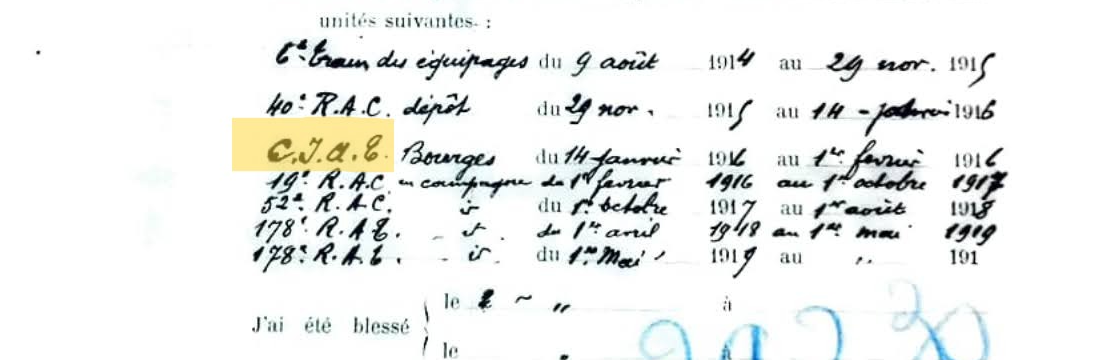 unités suivantes :
6e train des équipages du 9 août 1914 au 29 nov. 1915
40e R.A.C. dépôt du 29 nov. 1915 au 14 - janvier 1916
C.I.A.T. Bourges du 14 janvier 1916 au 1er fevrier 1916
19e R.A.C. en campagne du 1er fevrier 1916 au 1er octobre 1917
52e R.A.C. id du 1er octobre 1917 au 1er août 1918
178e R.A.T. - id. du 1er avril 1918 au 1er mai 1919
178e R.A.T. - id. du 1er Mai 1919 au " 191
J'ai été blessé
le " à
le